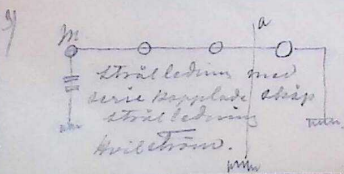 9)
M
a
strålledning med
serie kopplade skåp
strålledning
Hvilström.